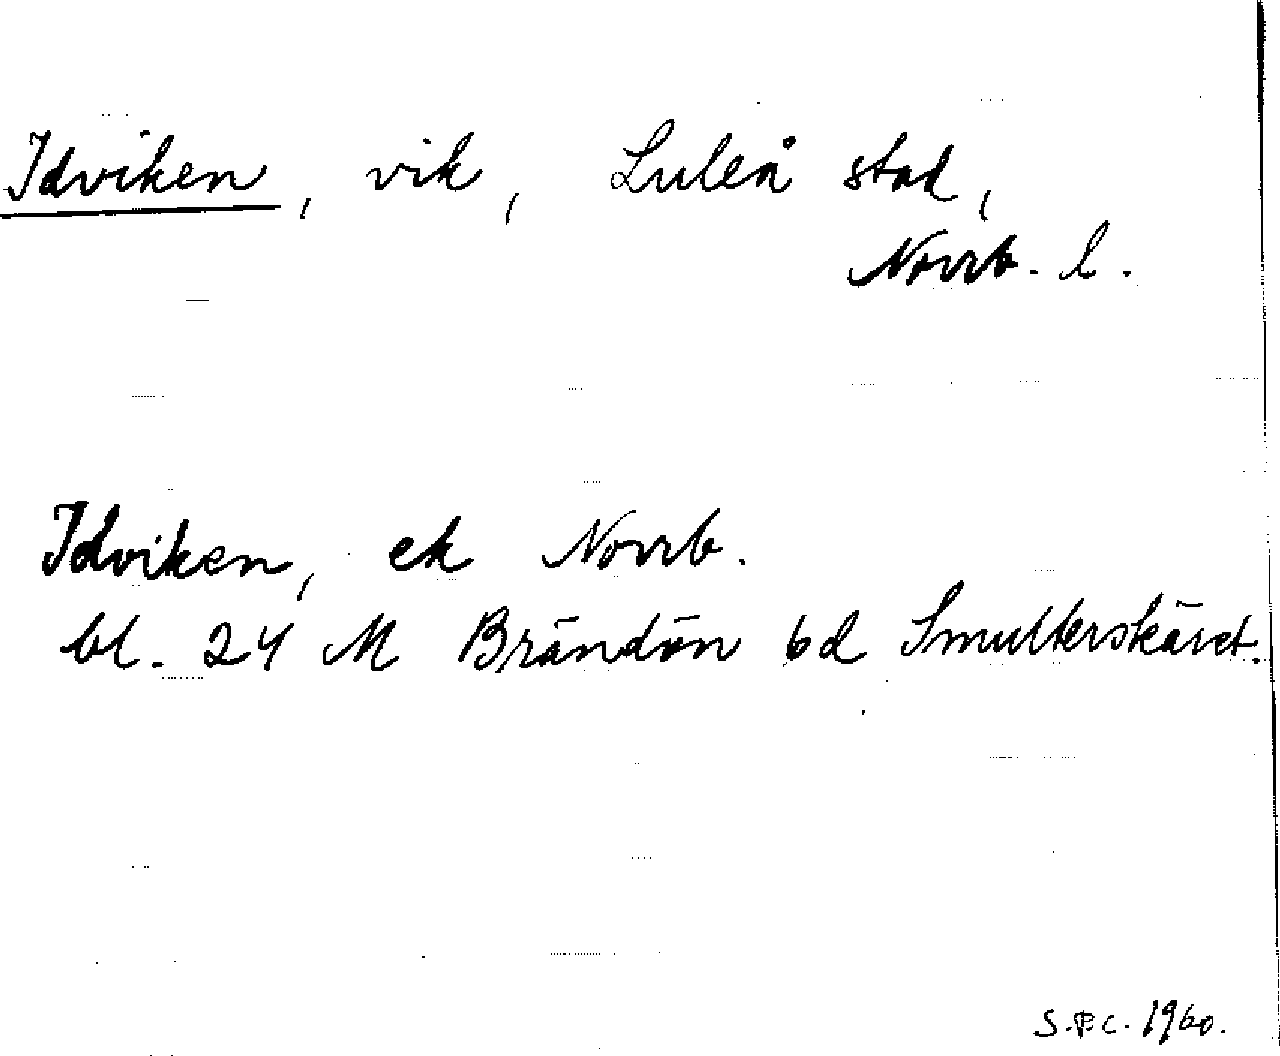 Idviken, vik, Luleå stad,
Norrb. l.
Idviken, ek Norrb.
bl. 24 M Brändön 6d Smulterskäret.
1960.